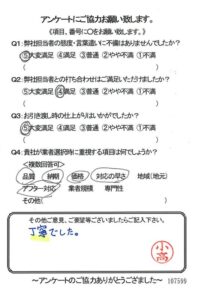 アンケートにご協力お願い致します。
《項目、番号に○をお願い致します。》
Q1:弊社担当者の態度・言葉遣いに不備はありませんでしたか?
⑤大変満足 ④満足 ③普通 ②やや不満 ①不満
( )
Q2:弊社担当者との打ち合わせはご満足いただけましたか?
⑤大変満足 ④満足 ③普通 ②やや不満 ①不満
( )
Q3:お引き渡し時の仕上がりはいかがでしたか?
⑤大変満足 ④満足 ③普通 ②やや不満 ①不満
( )
Q4:貴社が業者選択時に重視する項目は何でしょうか?
<複数回答可>
品質 納期 価格 対応の早さ 地域(地元)
アフター対応 業者規模 専門性
その他( )
その他ご意見、ご要望等ございましたらご記入下さい。
丁寧でした。
小高
~アンケートのご協力ありがとうございました~
107599